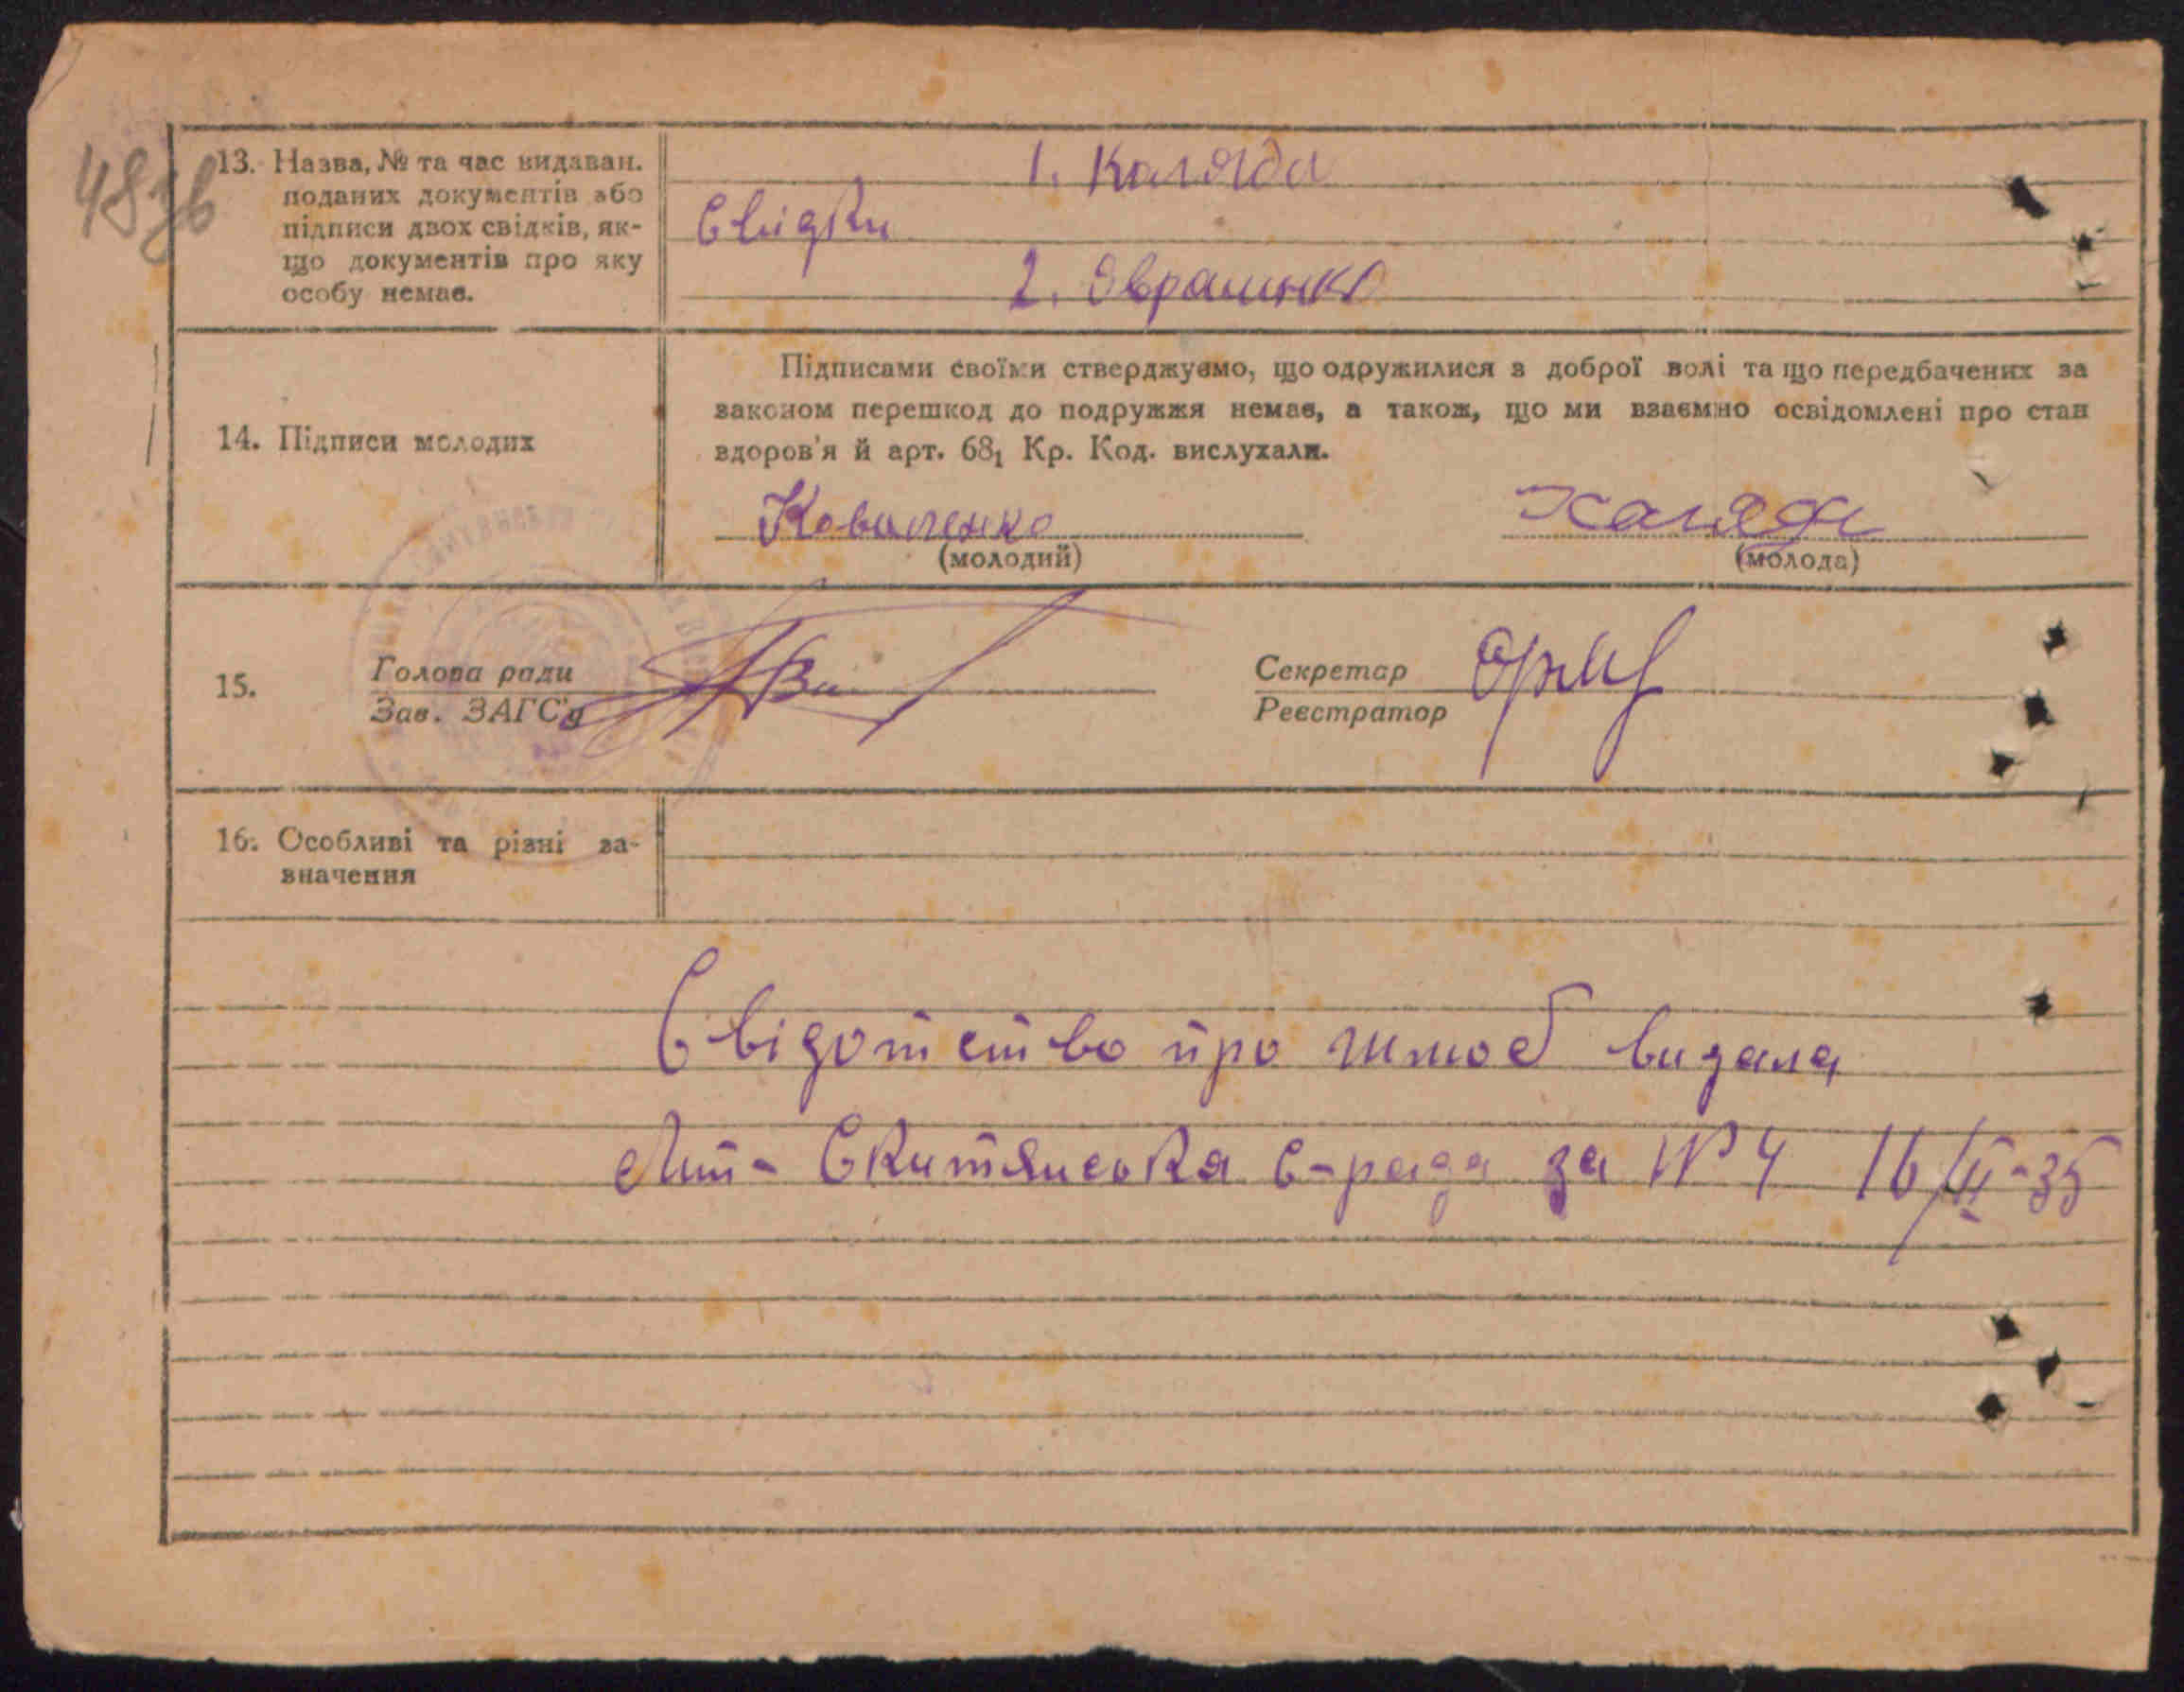 48зв
13. Назва, № та час видаван.
поданих документів або
підписи двох свідків, як-
що документів про яку
особу немає.
1. Каляда
Свідки
2. Авраменко
14. Підписи молодих
Підписами своїми стверджуємо, що одружилися з доброї волі та що передбачених за
законом перешкод до подружжя немає, а також, що ми взаємно освідомлені про стан
здоров'я й арт. 68₁ Кр. Код. вислухали.
Коваленко
(молодий)
(молода)
15.
Голова ради
Зав. ЗАГС'у
Секретар
Реєстратор
16. Особливі та різні за-
значення
Свідотство про шлюб видала
Скитянська с-рада за № 4 16/II-35